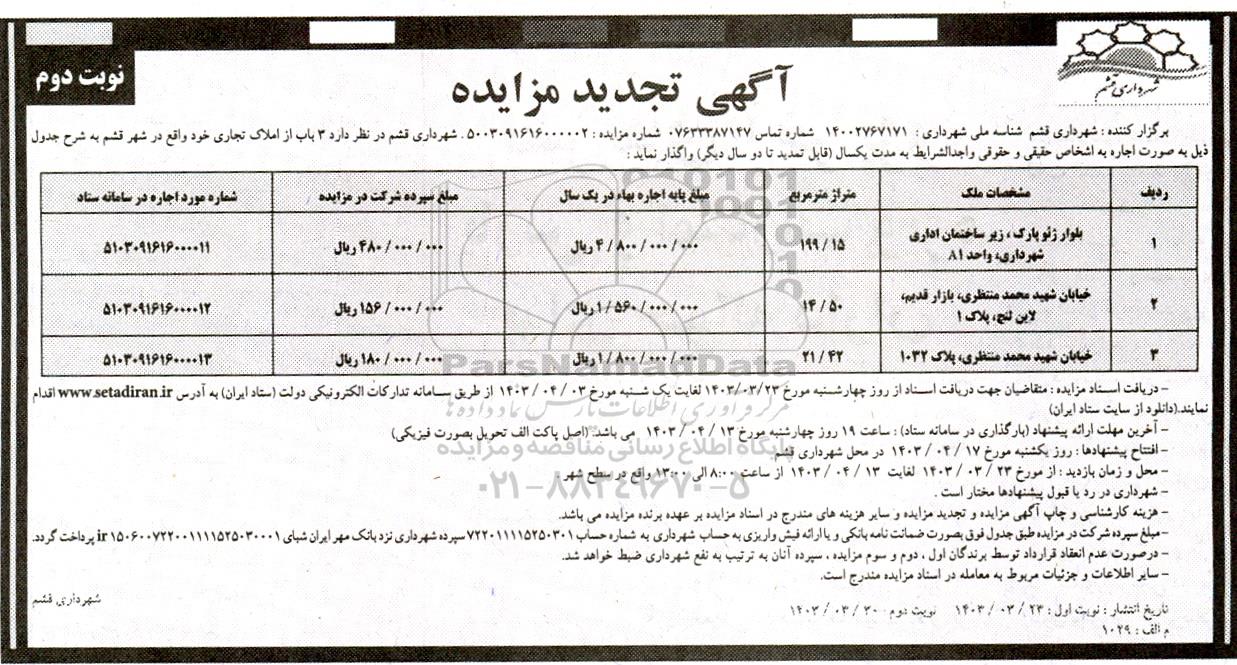 شهرداری قشم
نوبت دوم
آگهی تجدید مزایده
برگزار کننده : شهرداری قشم شناسه ملی شهرداری : ۱۴۰۰۲۷۶۷۱۷۱ شماره تماس ۰۷۶۳۳۳۸۷۱۴۷ شماره مزایده : ۵۰۰۳۰۹۱۶۱۶۰۰۰۰۰۲ . شهرداری قشم در نظر دارد ۳ باب از املاک تجاری خود واقع در شهر قشم به شرح جدول
ذیل به صورت اجاره به اشخاص حقیقی و حقوقی واجدالشرایط به مدت یکسال (قابل تمدید تا دو سال دیگر) واگذار نماید :
ردیف مشخصات ملک متراژ مترمربع مبلغ پایه اجاره بهاء در یک سال مبلغ سپرده شرکت در مزایده شماره مورد اجاره در سامانه ستاد
۱ بلوار ژئو پارک ، زیر ساختمان اداری شهرداری، واحد A۱ ۱۹۹/۱۵ ۴/۸۰۰/۰۰۰/۰۰۰ ریال ۴۸۰/۰۰۰/۰۰۰ ریال ۵۱۰۳۰۹۱۶۱۶۰۰۰۰۱۱
۲ خیابان شهید محمد منتظری، بازار قدیم، لاین لنج، پلاک ۱ ۱۴/۵۰ ۱/۵۶۰/۰۰۰/۰۰۰ ریال ۱۵۶/۰۰۰/۰۰۰ ریال ۵۱۰۳۰۹۱۶۱۶۰۰۰۰۱۲
۳ خیابان شهید محمد منتظری، پلاک ۱۰۳۲ ۲۱/۴۲ ۱/۸۰۰/۰۰۰/۰۰۰ ریال ۱۸۰/۰۰۰/۰۰۰ ریال ۵۱۰۳۰۹۱۶۱۶۰۰۰۰۱۳
ParsNamadData
– دریافت اسناد مزایده : متقاضیان جهت دریافت اسناد از روز چهارشنبه مورخ ۱۴۰۳/۰۳/۲۳ لغایت یک شنبه مورخ ۱۴۰۳/۰۴/۰۳ از طریق سامانه تدارکات الکترونیکی دولت (ستاد ایران) به آدرس www.setadiran.ir اقدام
نمایند.(دانلود از سایت ستاد ایران)
مرکز فرآوری اطلاعات پارس نماد داده ها
– آخرین مهلت ارائه پیشنهاد (بارگذاری در سامانه ستاد) : ساعت ۱۹ روز چهارشنبه مورخ ۱۴۰۳/۰۴/۱۳ می باشد. (اصل پاکت الف تحویل بصورت فیزیکی)
پایگاه اطلاع رسانی مناقصه و مزایده
– افتتاح پیشنهادها : روز یکشنبه مورخ ۱۴۰۳/۰۴/۱۷ در محل شهرداری قشم
– محل و زمان بازدید : از مورخ ۱۴۰۳/۰۳/۲۳ لغایت ۱۴۰۳/۰۴/۱۳ از ساعت ۸:۰۰ الی ۱۳:۰۰ واقع در سطح شهر .
۰۲۱-۸۸۳۴۹۶۷۰-۵
– شهرداری در رد یا قبول پیشنهادها مختار است .
– هزینه کارشناسی و چاپ آگهی مزایده و تجدید مزایده و سایر هزینه های مندرج در اسناد مزایده بر عهده برنده مزایده می باشد.
– مبلغ سپرده شرکت در مزایده طبق جدول فوق بصورت ضمانت نامه بانکی و یا ارائه فیش واریزی به حساب شهرداری به شماره حساب ۷۲۲۰۱۱۱۱۵۲۵۰۳۰۱ سپرده شهرداری نزد بانک مهر ایران شبای ir۱۵۰۶۰۰۷۲۲۰۰۱۱۱۱۵۲۵۰۳۰۰۰۱ پرداخت گردد.
– درصورت عدم انعقاد قرارداد توسط برندگان اول ، دوم و سوم مزایده ، سپرده آنان به ترتیب به نفع شهرداری ضبط خواهد شد.
– سایر اطلاعات و جزئیات مربوط به معامله در اسناد مزایده مندرج است.
شهرداری قشم
تاریخ انتشار : نوبت اول : ۱۴۰۳/۰۳/۲۳ نوبت دوم : ۱۴۰۳/۰۳/۳۰
م الف : ۱۰۲۹